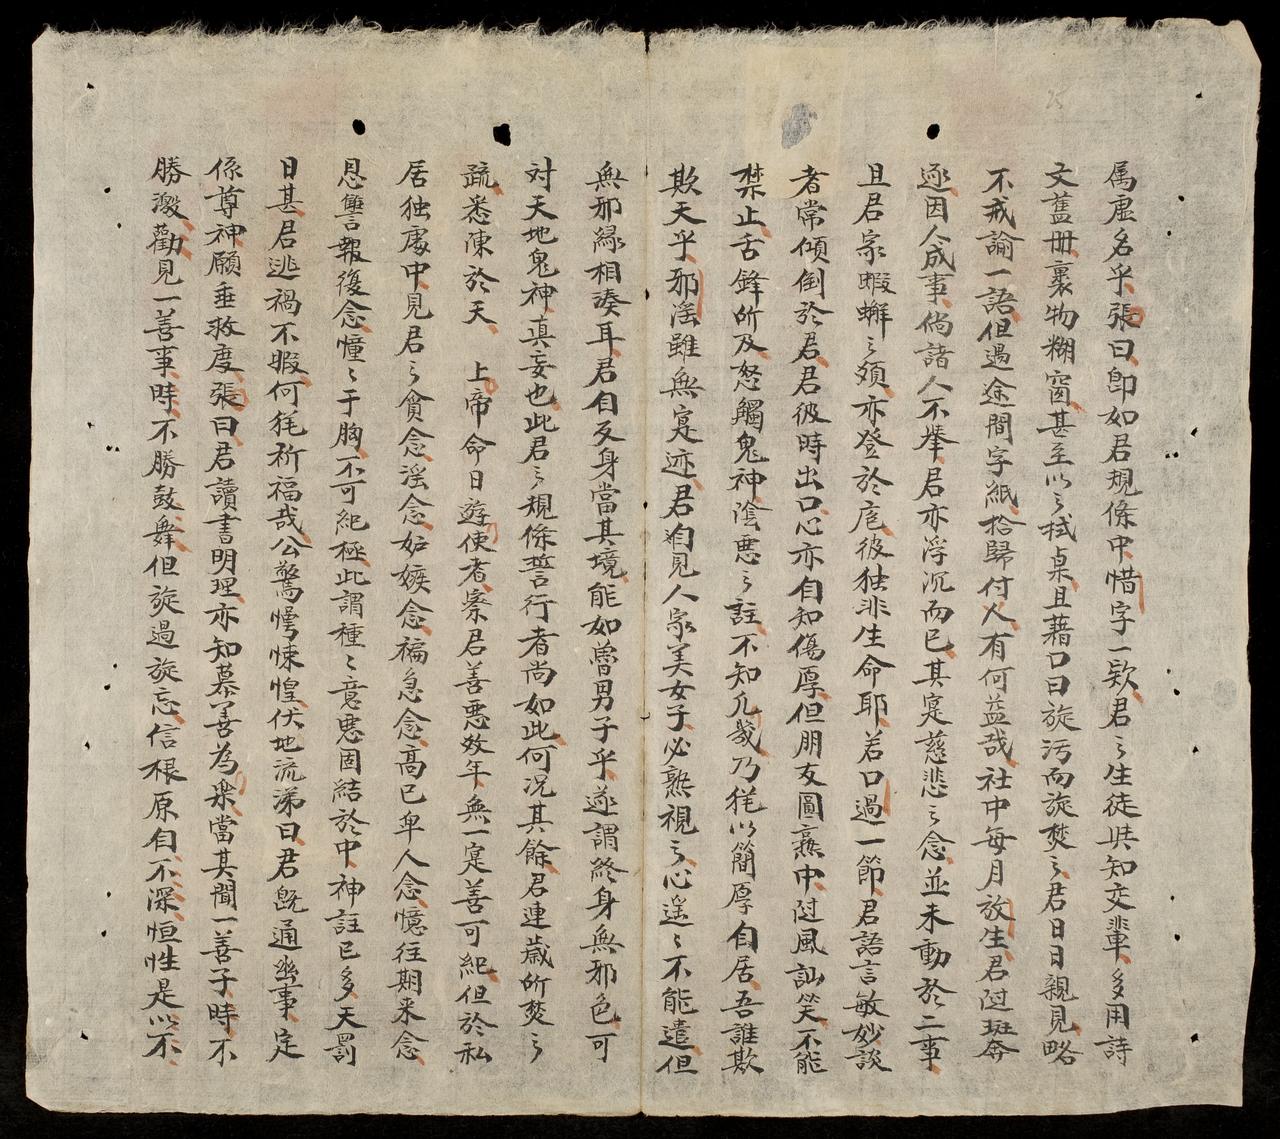 属虛名乎張曰即如君規條中惜字一欵君之生徒與知交輩多用詩
文舊冊裹物糊窗甚至以之拭桌且藉口曰旋污而旋焚之君日日親見略
不戒諭一語但過途間字紙拾歸付人有何益哉社中每月放生君隨班奔
逐因人成事倘諸人不舉君亦浮沉而已其寔慈悲之念並未動於二事
且君家蝦蠏之類亦登於庖彼独非生命耶若口過一節君語言敏妙談
者常傾倒於君君彼時出口心亦自知傷厚但朋友圖熟中隨風訕笑不能
禁止舌鋒所及怒觸鬼神陰悪之註不知凢幾乃猶以簡厚自居吾誰欺
欺天乎邪滛雖無寔迹君自見人家美女子必熟視之心遥〻不能遣但
無邪緣相湊耳君自反身當其境能如魯男子乎遂謂終身無邪色可
対天地鬼神真妄也此君之規條誓行者尚如此何况其餘君連歲所焚之
疏悉陳於天 上帝命日遊使者察君善悪数年無一寔善可紀但於私
居独處中見君之貪念滛念妬嫉念褊急念高己卑人念憶往期来念
恩讐報復念憧〻于胸不可紀極此謂種〻意悪固結於中神註已多天罰
日甚君逃禍不暇何猶祈福哉公驚愕悚惶伏地流涕曰君既通幽事定
係尊神願垂救度張曰君讀書明理亦知慕善為楽當其聞一善子時不
勝激勸見一善事時不勝鼓舞但旋過旋忘信根原自不深恒性是以不